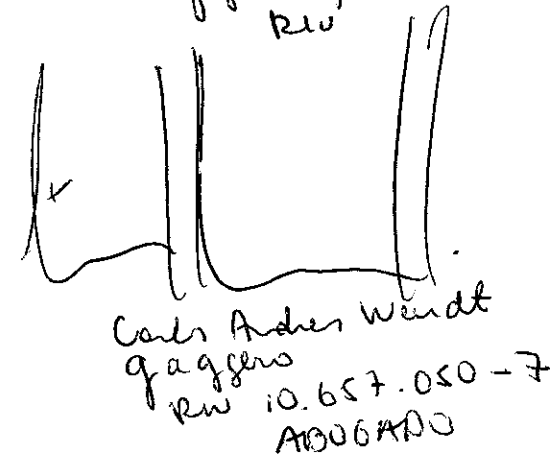 RW
Carlos Andres Wendt
gaggero
RW 10.657.050-7
ABOGADO